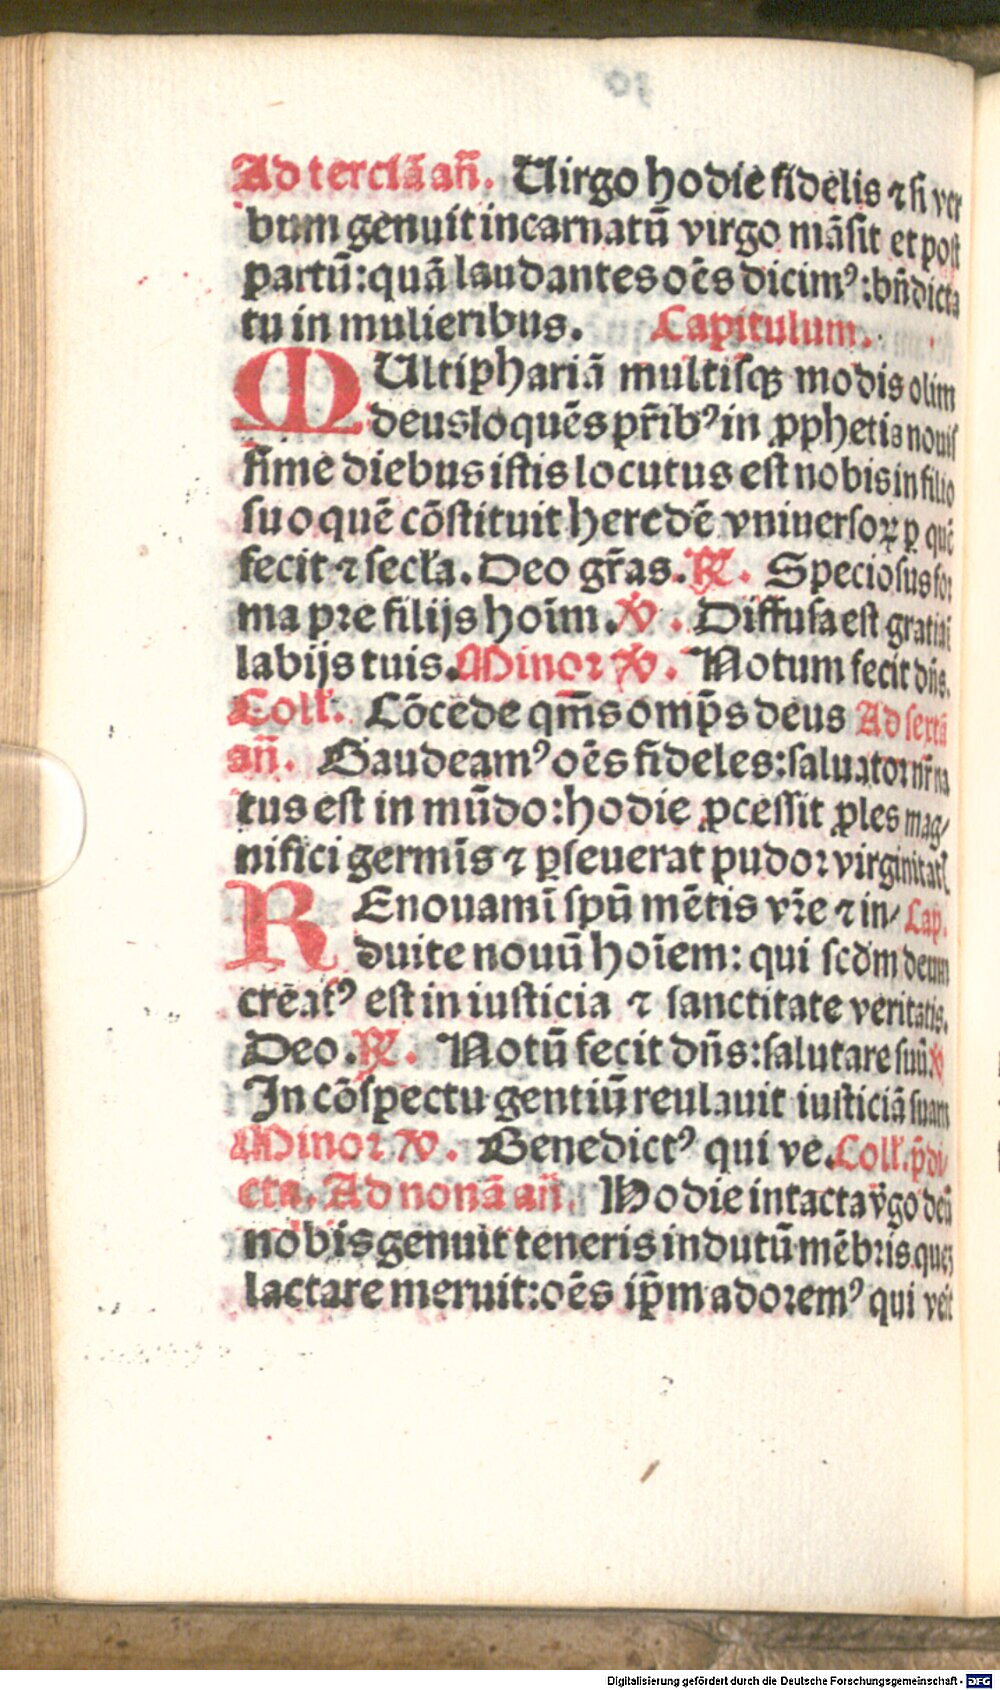 Ad terciā añ. Uirgo hodie fidelis ⁊ si ver
bum genuit incarnatū virgo māsit et post
partū: quā laudantes oēs dicimꝰ: bñdicta
tu in mulieribus. Capitulum.
MUltipͥhariā multisqꝫ modis olim
deus loquēs pr̄ibꝰ in ꝓphetis nouis
sime diebus istis locutus est nobis in filio
suo quē cōstituit heredē vniuersoꝝ ꝑ quē
fecit ⁊ secl̄a. Deo gr̄as. ℟. Speciosus for
ma pre filijs hoīm. ℣. Diffusa est gratia ī
labijs tuis. Minor ℣. Notum fecit dñs.
Coll̄. Cōcede qm̄s omp̄s deus Ad sextā
añ. Gaudeamꝰ oēs fideles: saluator nr̄ na
tus est in mūdo: hodie ꝓcessit ꝓles mag/
nifici germīs ⁊ ꝑseuerat pudor virginitatꝭ
REnouamī spū mētis vr̄e ⁊ in/ Cap.
duite nouū hoīem: qui scdm deum
creatꝰ est in iusticia ⁊ sanctitate veritatis.
Deo. ℟. Notū fecit dñs: salutare suū ℣
In cōspectu gentiū reulauit iusticiā suam
Minor ℣. Benedictꝰ qui ve. Coll̄. p̄di/
cta. Ad nonā añ. Hodie intacta v̄go deū
nobis genuit teneris indutū mēbris queꝫ
lactare meruit: oēs ip̄m adoremꝰ qui veīt
Digitalisierung gefördert durch die Deutsche Forschungsgemeinschaft - DFG